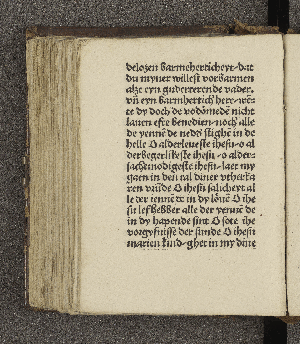 delozen barmeherticheyt dat
du myner willest vorbarmen
alze eyn guderterende vader.
vñ eyn barmhertich here wẽt
te dy doch de vodõmedẽ nicht
lauen efte benedien noch alle
de yennẽ de neddẽ stighẽ in de
helle O alderleueste ihesu o al
derbegerlikeste ihesu o alder
sachtmodigeste ihesu laet my
gaen in den tal diner vtherka
ren vrũde O ihesu salicheyt al
le der iennẽ de in dy lõuẽ O ihe
su lefhebber alle der yennẽ de
in dy hapende sint O sote ihe
vorgyfnisse der sunde O ihesu
marien kind ghet in my dine